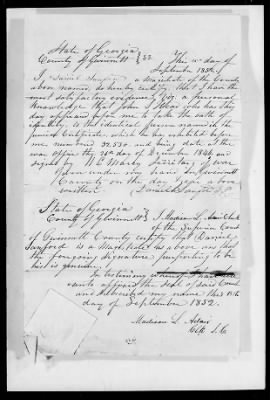 State of Georgia
County of Gwinnett } SS. The day of
September 1852
I Daniel Sanford a Magistrate of the County
above named, do hereby certify that I have the
most satisfactory evidence, viz. a personal
knowledge that John S. who has this
day appeared before me to take the oath of
identity, is the identical person named in the
pension Certificate, which he has exhibited before
me numbered and being date at the
war office the day of December 1844 and
signed by Wm. Marcy Secretary of war
Given under my hand in Gwinnett
County on the day & year above
written. Daniel Sanford J.P.
State of Georgia
County of Gwinnett } I, Madison L. Adair Clerk
of the Inferior Court
of Gwinnett County certify that Daniel
Sanford is a Magistrate as above and that
the foregoing signature purporting to be
his is genuine.
In testimony whereof I have
unto affixed the seal of said Court
and subscribed my name this
day of September 1852.
Madison L. Adair
Clk I.C.